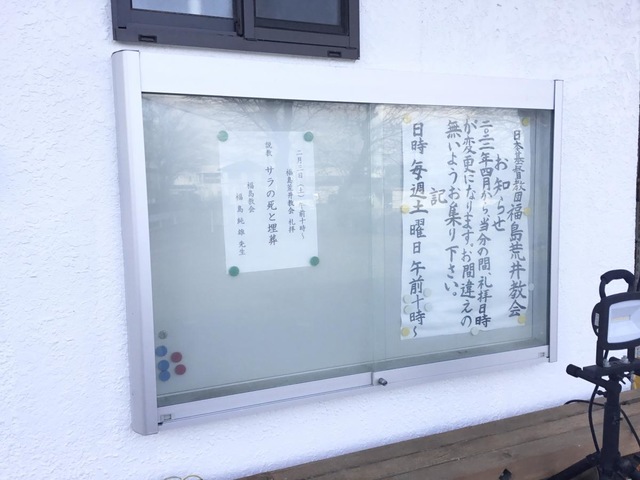 日本基督教団福島荒井教会
お知らせ
二〇二二年四月から、当分の間、礼拝日時
が変更になります。お間違えの
無いようお集り下さい。
記
日時 毎週土曜日 午前十時～
二月三日（土）午前十時～
福島荒井教会 礼拝
説教 サラの死と埋葬
福島教会
福島 純雄 先生